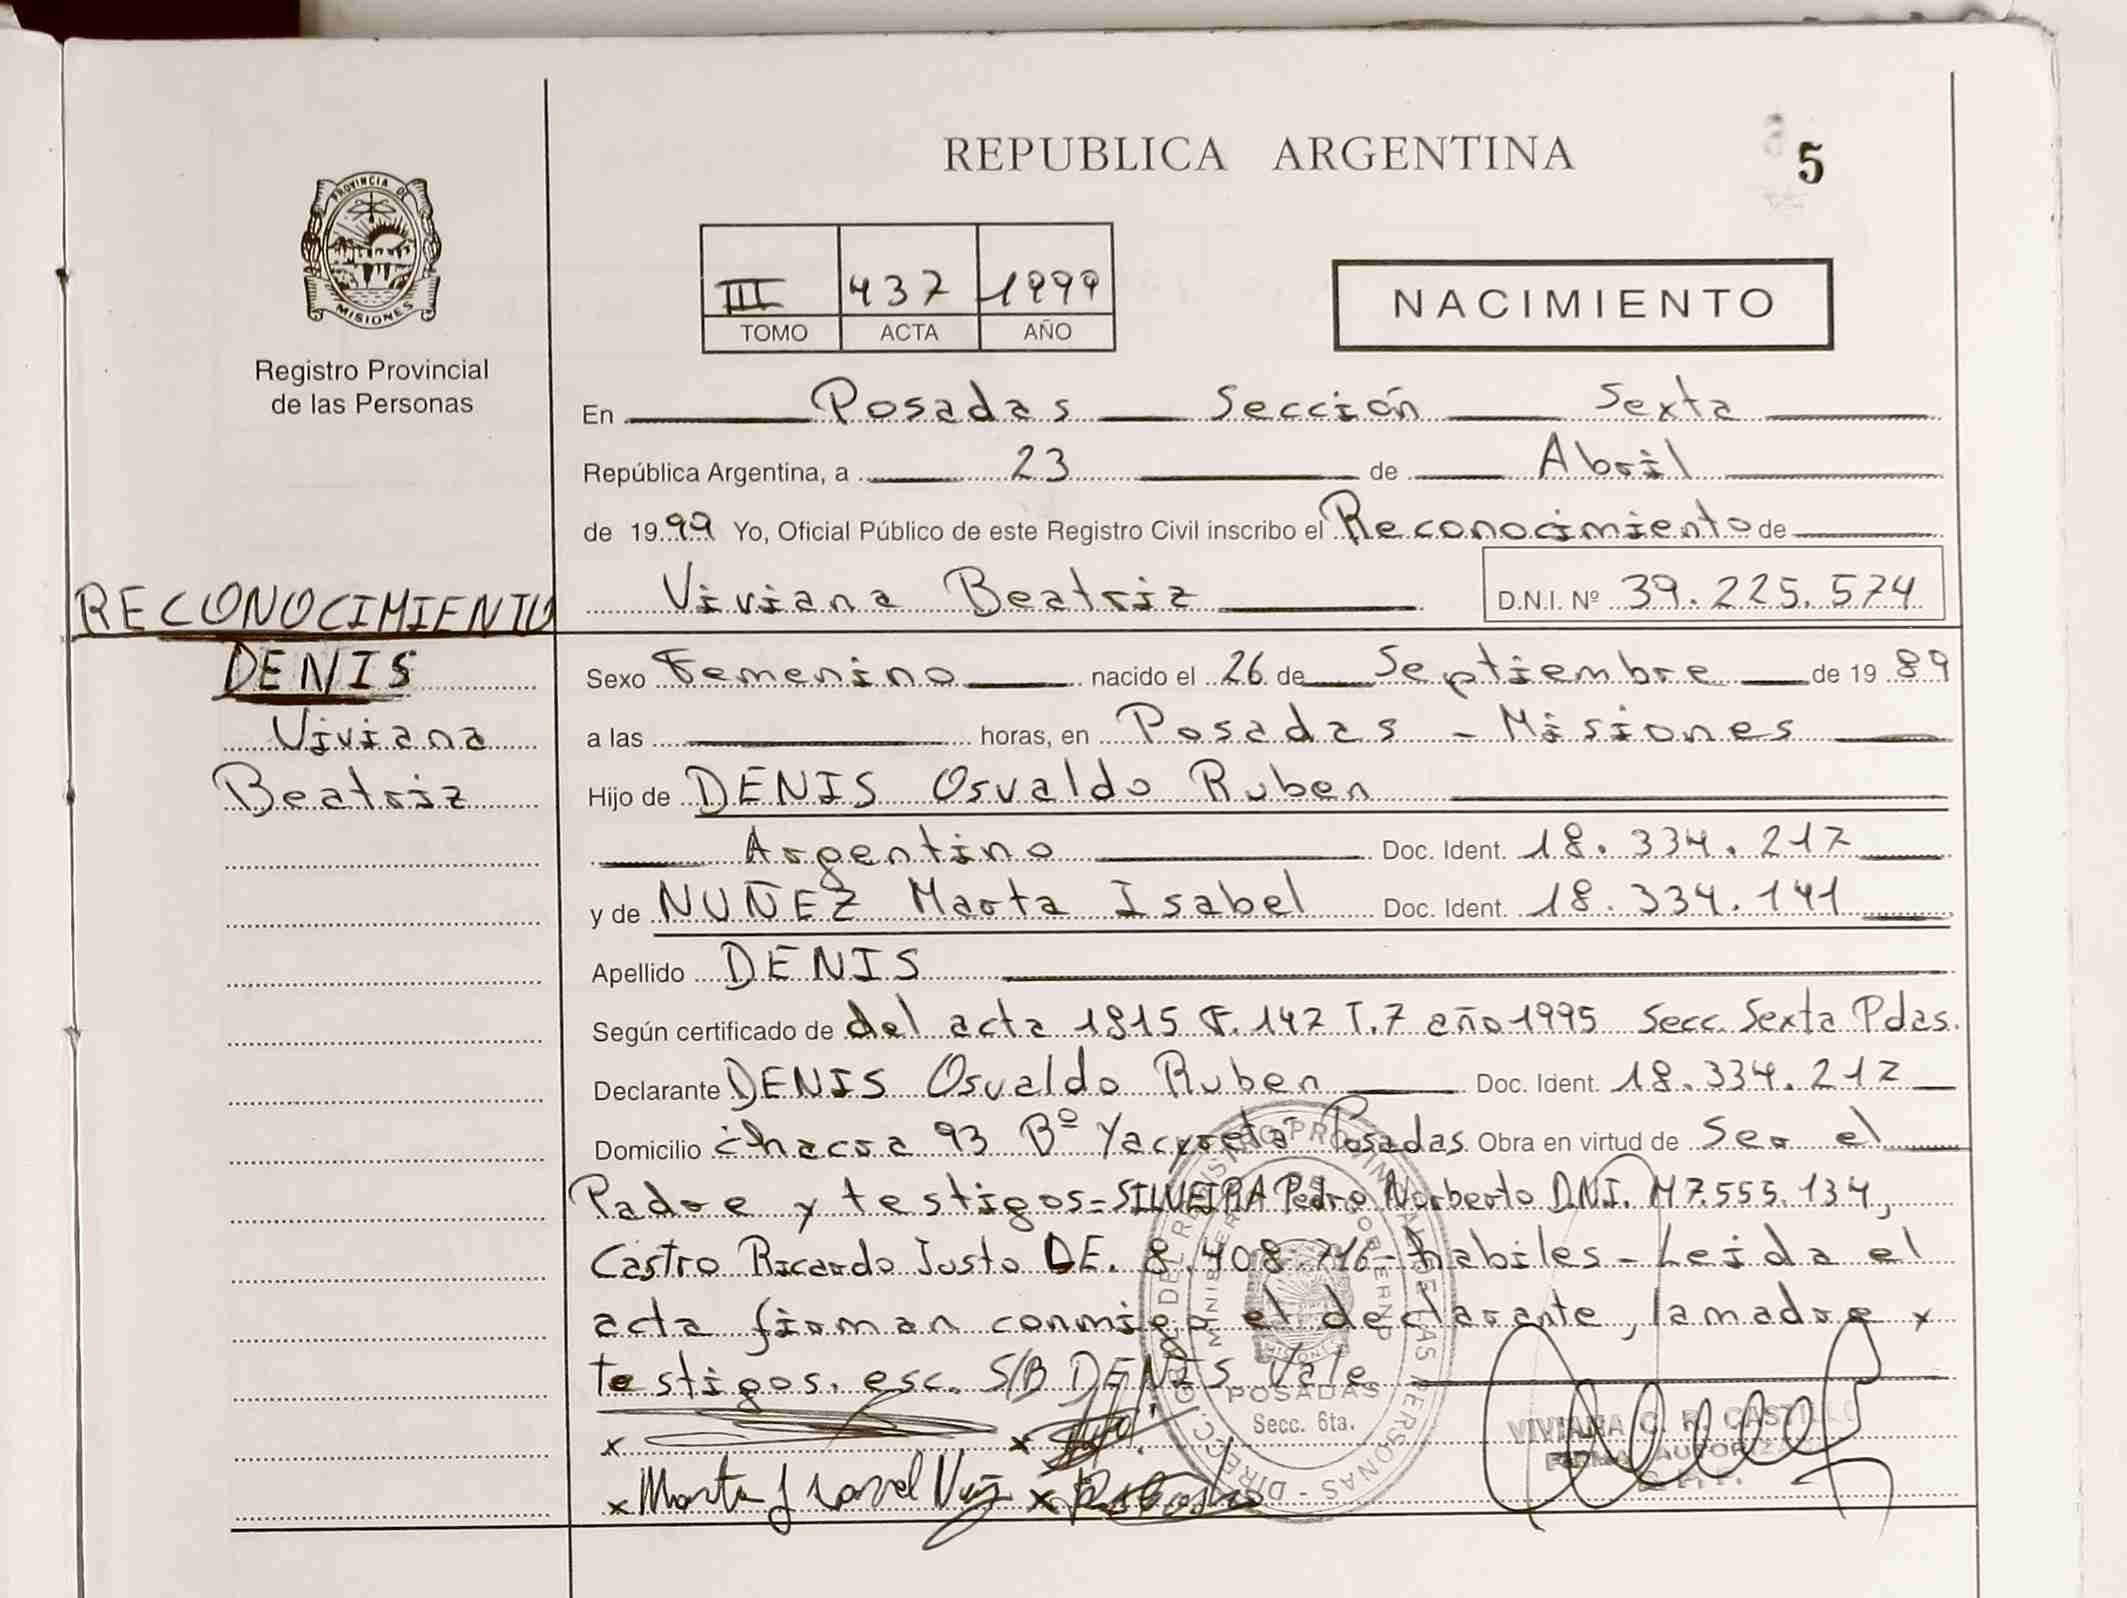 REPUBLICA ARGENTINA
5
PROVINCIA DE
MISIONES
Registro Provincial
de las Personas
III 437 1999
TOMO ACTA AÑO
NACIMIENTO
En Posadas Sección Sexta
República Argentina, a 23 de Abril
de 1999 Yo, Oficial Público de este Registro Civil inscribo el Reconocimiento de
Viviana Beatriz D.N.I. Nº 39.225.574
RECONOCIMIENTO
DENIS
Viviana
Beatriz
Sexo Femenino nacido el 26 de Septiembre de 1989
a las horas, en Posadas - Misiones
Hijo de DENIS Osvaldo Ruben
Argentino Doc. Ident. 18.334.217
y de NUÑEZ Marta Isabel Doc. Ident. 18.334.141
Apellido DENIS
Según certificado de del acta 1815 F. 147 T. 7 año 1995 Secc. Sexta Pdas.
Declarante DENIS Osvaldo Ruben Doc. Ident. 18.334.217
Domicilio chacra 93 Bº Yacyreta Posadas Obra en virtud de Ser el
Padre y testigos = SILVEIRA Pedro Norberto D.N.I. M7.555.134,
Castro Ricardo Justo DE. 8.408.716 - habiles - Leida el
acta firman conmigo el declarante, la madre y
testigos. esc. S/B DENIS Vale
POSADAS
Secc. 6ta.
VIVIANA C. R. CASTILLO
FIRMA AUTORIZADA
x x
x Marta Isabel x